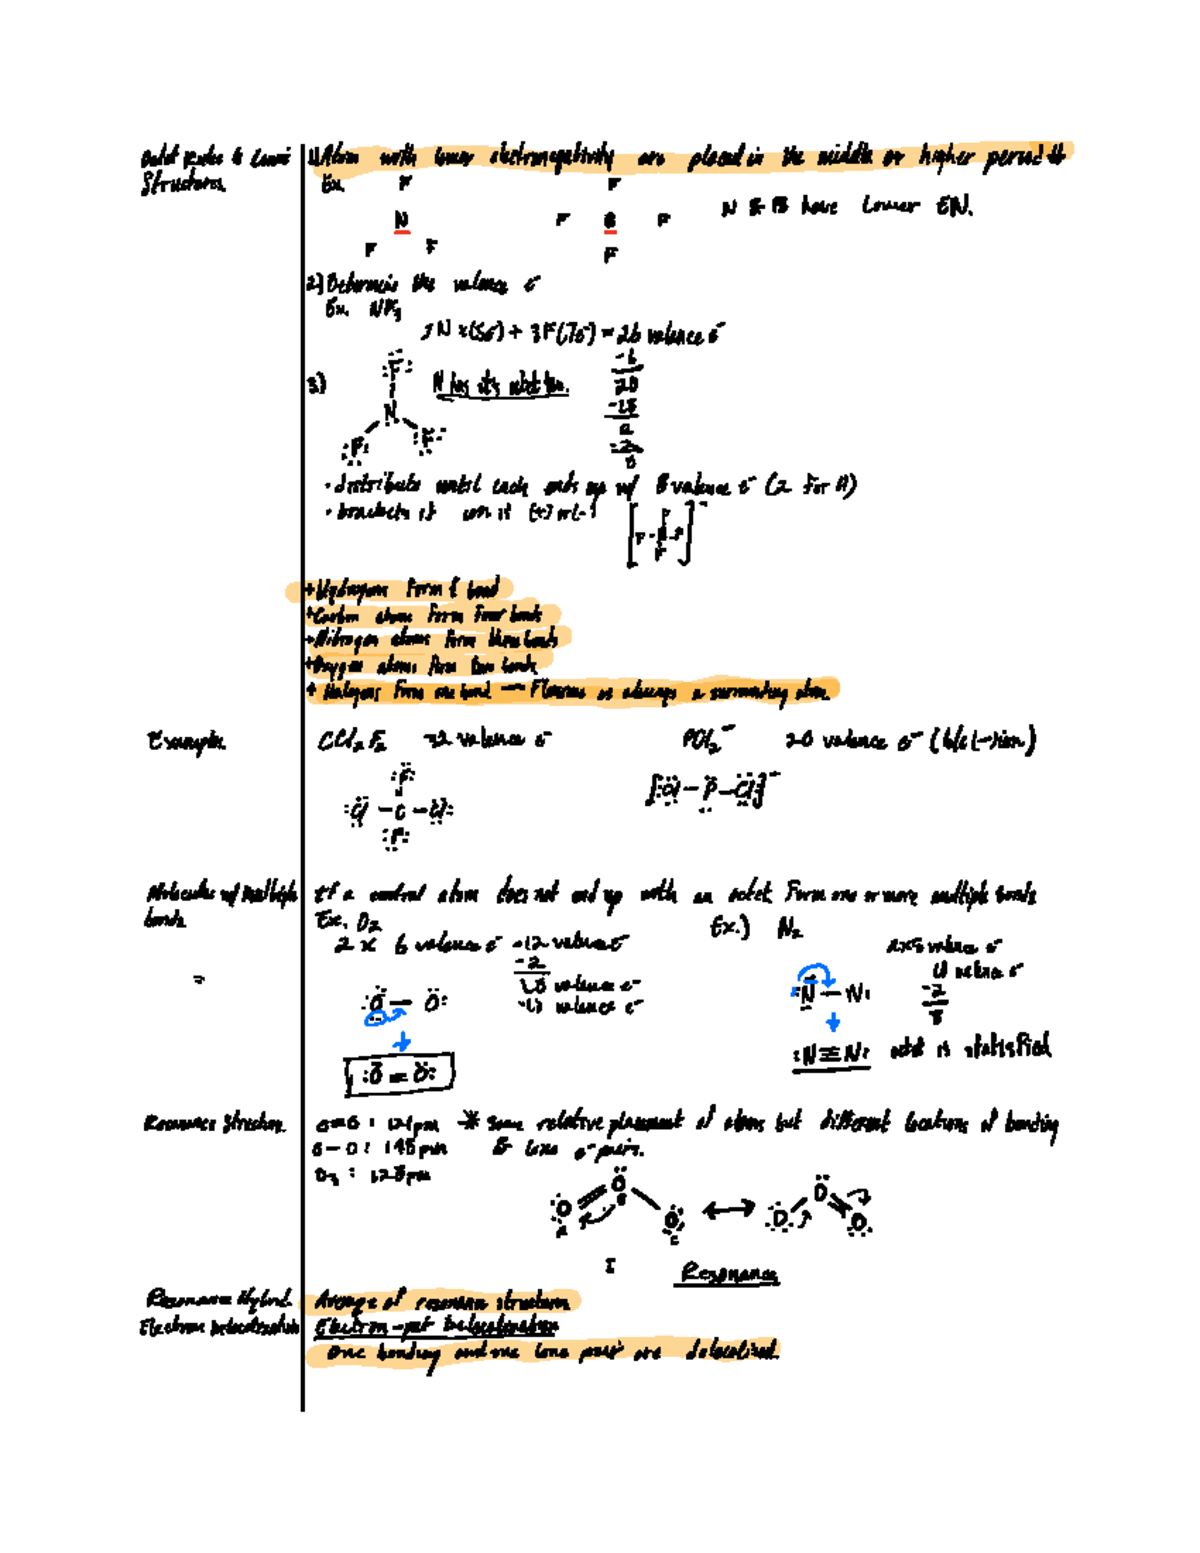 Octet Rules & Lewis Structures.
1) Atom with lower electronegativity are placed in the middle or higher period #
Ex.
F F
N F B F N & B have lower EN.
F F F
2) Determine the valence e-
Ex. NF3
1N x(5e-) + 3F(7e-) = 26 valence e-
-6
20
-18
2
-2
0
3)
:F:
N
:F: :F:
N has its octet
· distribute until each ends up w/ 8 valence e- (2 for H)
· brackets if ion is (+) or (-)
+ Hydrogens form 1 bond
+ Carbon atoms form four bonds
+ Nitrogen atoms form three bonds
+ Oxygen atoms form two bonds
+ Halogens form one bond — Fluorine is always a surrounding atom.
Examples.
CCl2F2 32 valence e- PCl2- 20 valence e- (b/c (-) ion)
:F:
:Cl — C — Cl:
:F:
[:Cl — P — Cl:]-
Molecules w/ Multiple bonds.
If a central atom does not end up with an octet. Form one or more multiple bonds
Ex. O2 Ex.) N2
2 x 6 valence e- -12 valence e-
-2
10 valence e-
-10 valence e-
:O — O:
:O = O:
2x5 valence e-
10 valence e-
-2
8
:N — N:
:N≡N: octet is statisfied
=
Resonance Structures.
O=O : 121pm * Same relative placement of atoms but different locations of bonding
O-O : 148pm & lone e- pairs.
O3 : 128pm
O O O ↔ O O O
A B C
I
Resonance
Resonance Hybrid. Average of resonance structures
Electron Delocalization Electron-pair Delocalization
One bonding and one lone pair are delocalized.